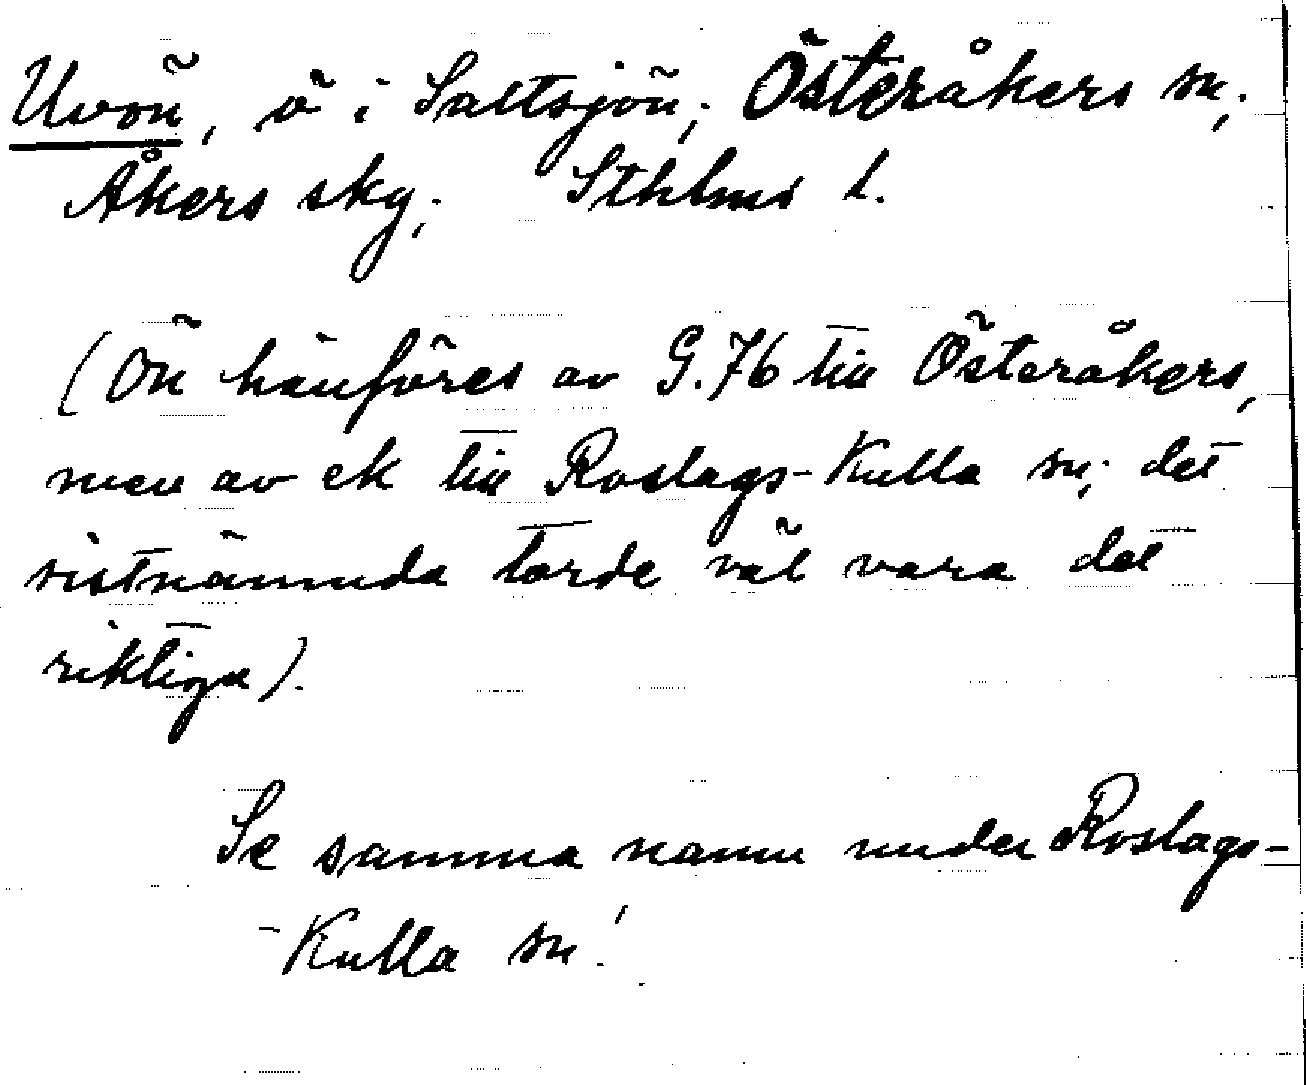 Uvön, ö i Saltsjön; Österåkers sn;
Åkers skg; Sthlms l.
(Ön hänföres av G.76 till Österåkers,
men av ek till Roslags-Kulla sn; det
sistnämnda torde väl vara det
riktiga).
Se samma namn under Roslags-
-Kulla sn!